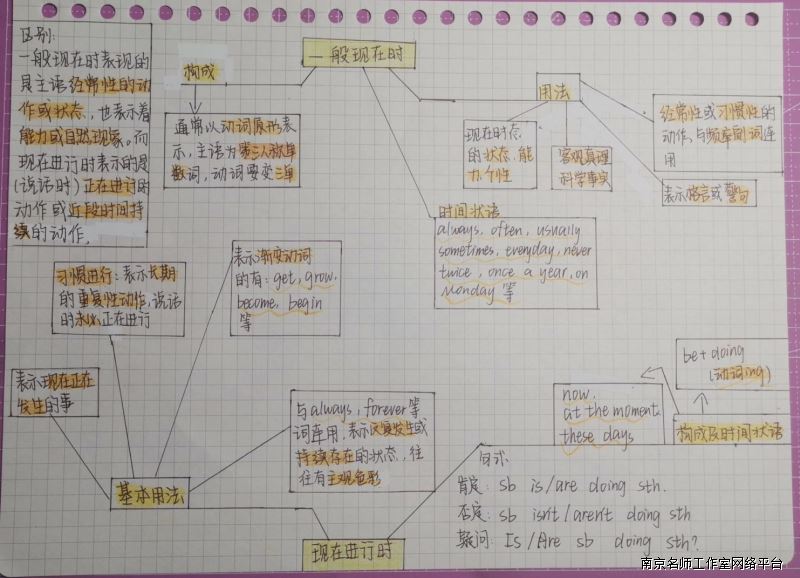 区别:
一般现在时表现的
是主语经常性的动
作或状态,也表示着
能力或自然现象。而
现在进行时表示的是
(说话时)正在进行时
动作或近段时间持
续的动作,
构成
通常以动词原形表
示,主语为第三人称单
数词,动词要变三单
一般现在时
用法
现在时态
的状态,能
力,个性
客观真理
科学事实
经常性或习惯性的
动作,与频率副词连
用
表示格言或警句
时间状语
always, often, usually
sometimes, everyday, never
twice, once a year, on
Monday 等
习惯进行:表示长期
的重复性动作,说话
时未必正在进行
表示渐变动词
的有:get, grow,
become, begin
等
表示现在正在
发生的事
与always, forever等
词连用,表示反复发生或
持续存在的状态,往
往有主观色彩
基本用法
现在进行时
be + doing
(动词ing)
now.
at the moment.
these days
构成及时间状语
句式:
肯定: sb is/are doing sth.
否定: sb isn't/aren't doing sth
疑问: Is/Are sb doing sth?
南京名师工作室网络平台